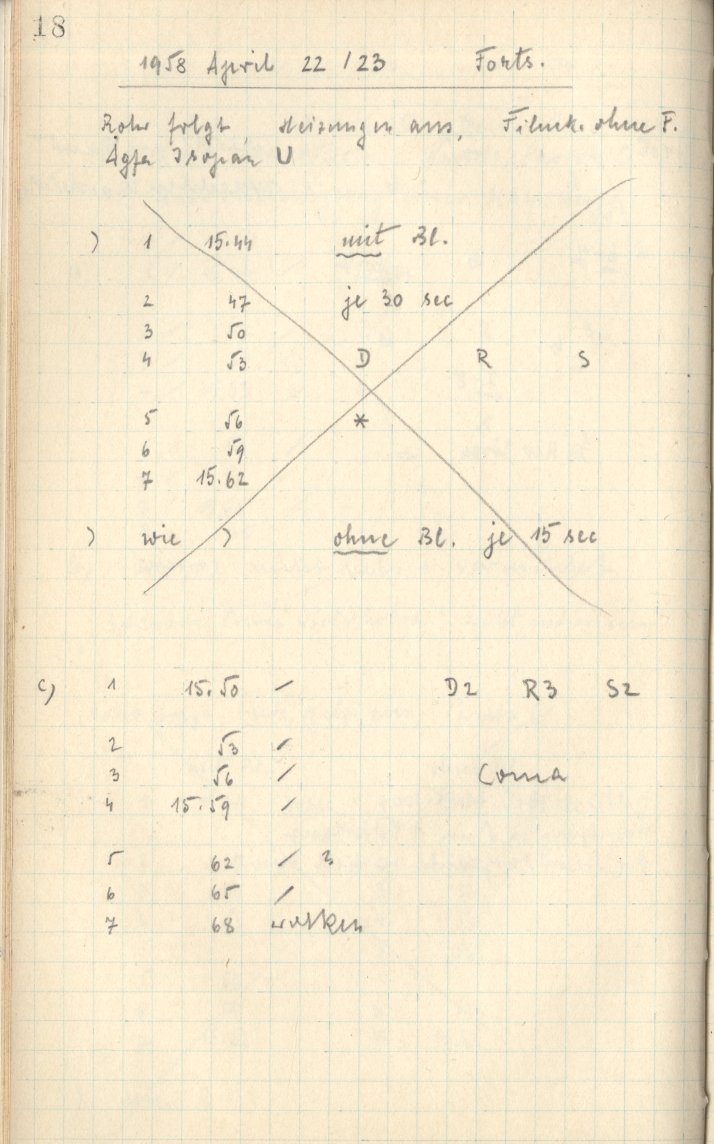 18
1958 April 22/23 Forts.
Rohr folgt, Heizungen aus, Filmk. ohne F.
Agfa Isopan U
) 1 15.44 mit Bl.
2 47 je 30 sec
3 50
4 53 D R S
5 56 *
6 59
7 15.62
) wie ) ohne Bl. je 15 sec
c) 1 15.50 / D2 R3 S2
2 53 /
3 56 / Coma
4 15.59 /
5 62 / ?
6 65 /
7 68 Wolken